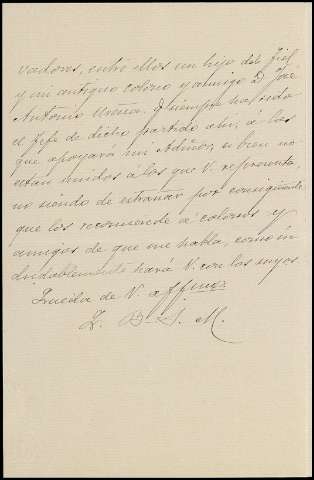 vadores, entre ellos un hijo del fiel
y mi antiguo colono y amigo D. José
Antonio Ureña. Siempre ha sido
el Jefe de dicho partido ahí, a las
que apoyará mi si bien no
están unidos a los que V. representa,
no siendo de extrañar por consiguiente
que los recomiende a colonos y
amigos de que me habla, como in
dudablemente hará V. con los suyos.
Queda de V. affmo
Q. B. S. M.